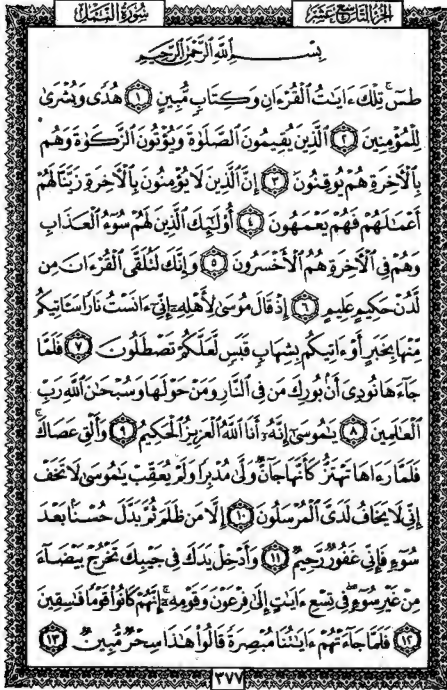 الجزء التاسع عشر سورة النمل
بسم الله الرحمن الرحيم
طسٓۚ تِلْكَ ءَايَٰتُ ٱلْقُرْءَانِ وَكِتَابٍ مُّبِينٍ ١ هُدًى وَبُشْرَىٰ
لِلْمُؤْمِنِينَ ٢ ٱلَّذِينَ يُقِيمُونَ ٱلصَّلَوٰةَ وَيُؤْتُونَ ٱلزَّكَوٰةَ وَهُم
بِٱلْءَاخِرَةِ هُمْ يُوقِنُونَ ٣ إِنَّ ٱلَّذِينَ لَا يُؤْمِنُونَ بِٱلْءَاخِرَةِ زَيَّنَّا لَهُمْ
أَعْمَٰلَهُمْ فَهُمْ يَعْمَهُونَ ٤ أُو۟لَٰٓئِكَ ٱلَّذِينَ لَهُمْ سُوٓءُ ٱلْعَذَابِ
وَهُمْ فِى ٱلْءَاخِرَةِ هُمُ ٱلْأَخْسَرُونَ ٥ وَإِنَّكَ لَتُلَقَّى ٱلْقُرْءَانَ مِن
لَّدُنْ حَكِيمٍ عَلِيمٍ ٦ إِذْ قَالَ مُوسَىٰ لِأَهْلِهِۦٓ إِنِّىٓ ءَانَسْتُ نَارًا سَـَٔاتِيكُم
مِّنْهَا بِخَبَرٍ أَوْ ءَاتِيكُم بِشِهَابٍ قَبَسٍ لَّعَلَّكُمْ تَصْطَلُونَ ٧ فَلَمَّا
جَآءَهَا نُودِىَ أَنۢ بُورِكَ مَن فِى ٱلنَّارِ وَمَنْ حَوْلَهَا وَسُبْحَٰنَ ٱللَّهِ رَبِّ
ٱلْعَٰلَمِينَ ٨ يَٰمُوسَىٰٓ إِنَّهُۥٓ أَنَا ٱللَّهُ ٱلْعَزِيزُ ٱلْحَكِيمُ ٩ وَأَلْقِ عَصَاكَۚ
فَلَمَّا رَءَاهَا تَهْتَزُّ كَأَنَّهَا جَآنٌّ وَلَّىٰ مُدْبِرًا وَلَمْ يُعَقِّبْۚ يَٰمُوسَىٰ لَا تَخَفْ
إِنِّى لَا يَخَافُ لَدَىَّ ٱلْمُرْسَلُونَ ١٠ إِلَّا مَن ظَلَمَ ثُمَّ بَدَّلَ حُسْنًۢا بَعْدَ
سُوٓءٍ فَإِنِّى غَفُورٌ رَّحِيمٌ ١١ وَأَدْخِلْ يَدَكَ فِى جَيْبِكَ تَخْرُجْ بَيْضَآءَ
مِنْ غَيْرِ سُوٓءٍۖ فِى تِسْعِ ءَايَٰتٍ إِلَىٰ فِرْعَوْنَ وَقَوْمِهِۦٓۚ إِنَّهُمْ كَانُوا۟ قَوْمًا فَٰسِقِينَ
١٢ فَلَمَّا جَآءَتْهُمْ ءَايَٰتُنَا مُبْصِرَةً قَالُوا۟ هَٰذَا سِحْرٌ مُّبِينٌ ١٣
٣٧٧